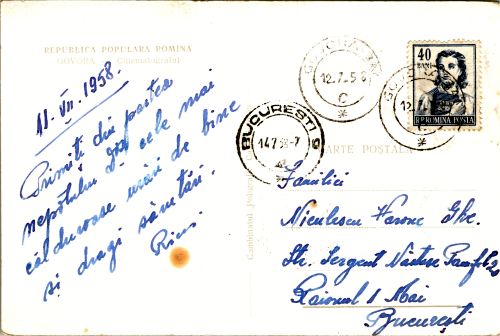 REPUBLICA POPULARA ROMINA
GOVORA – Cinematograful
11.VII.1958.
Primiți din partea
nepotului dv cele mai
călduroase urări de bine
și dragi sănătări.
GOVORA
12.7.58
C
*
40
BANI
R.P. ROMINA POSTA
12.7.
BUCUREȘTI 9
14.7.58-7
*
CARTE POȘTALĂ
Familiei
Niculescu Varone Ghe.
Str. Sergent Năstase Pamfil 20
Raionul 1 Mai
București
Combinatul Poligrafic